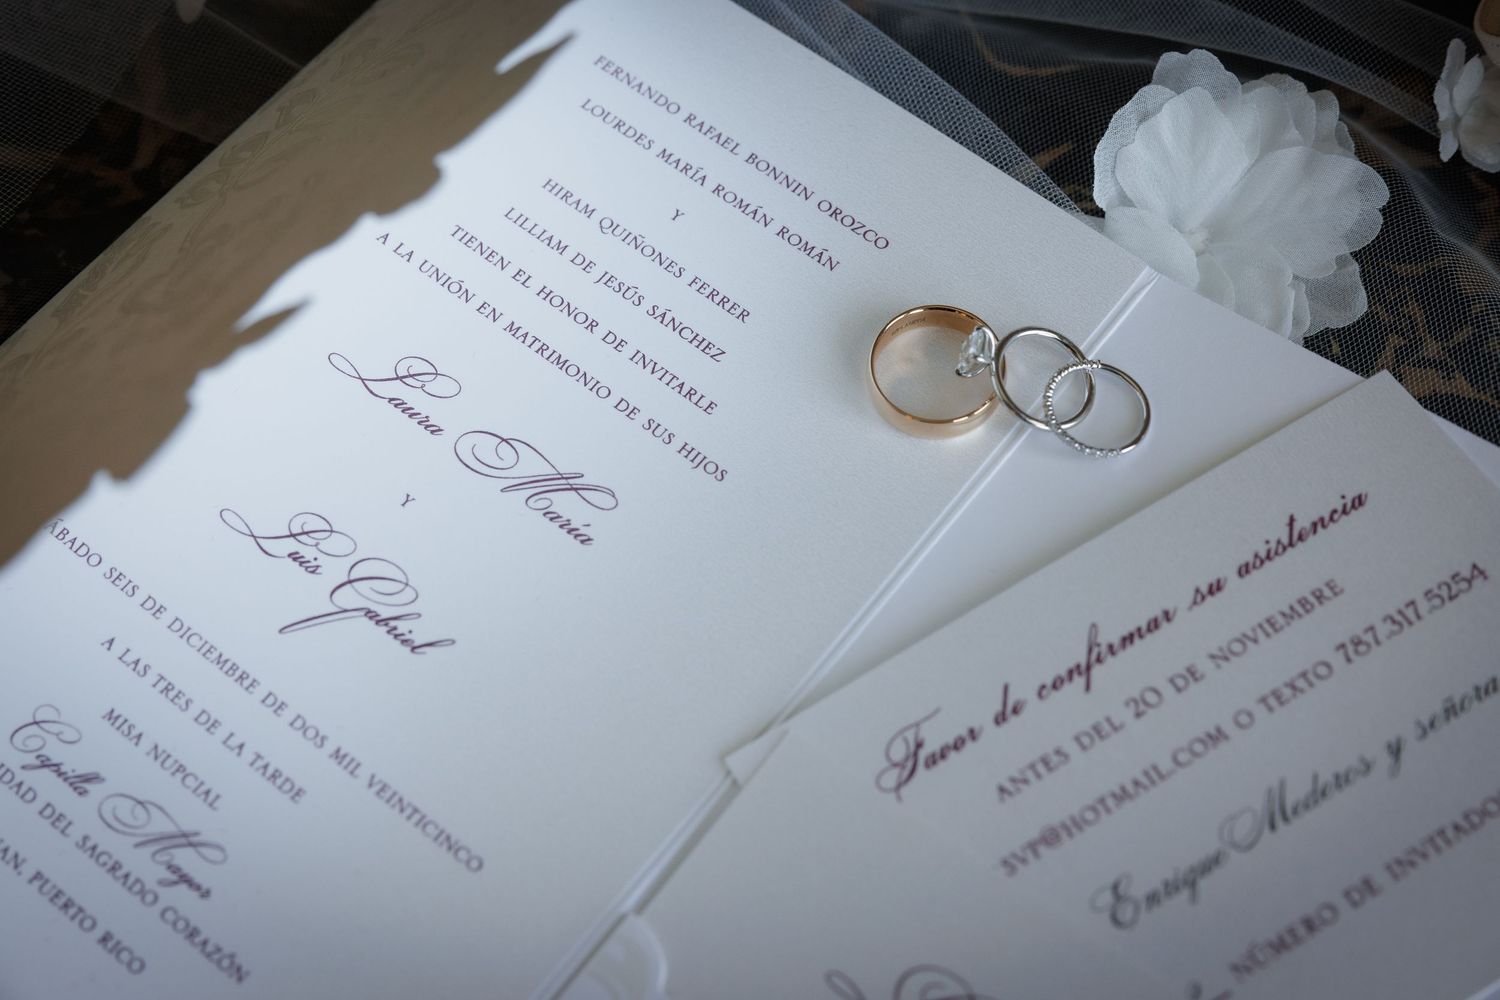 FERNANDO RAFAEL BONNIN OROZCO
LOURDES MARÍA ROMÁN ROMÁN
Y
HIRAM QUIÑONES FERRER
LILLIAM DE JESÚS SÁNCHEZ
TIENEN EL HONOR DE INVITARLE
A LA UNIÓN EN MATRIMONIO DE SUS HIJOS
Laura María
Y
Luis Gabriel
ÁBADO SEIS DE DICIEMBRE DE DOS MIL VEINTICINCO
A LAS TRES DE LA TARDE
MISA NUPCIAL
Capilla Mayor
IDAD DEL SAGRADO CORAZÓN
AN, PUERTO RICO
Favor de confirmar su asistencia
ANTES DEL 20 DE NOVIEMBRE
SVP@HOTMAIL.COM O TEXTO 787.317.5254
Enrique Mederos y señora
NÚMERO DE INVITADO